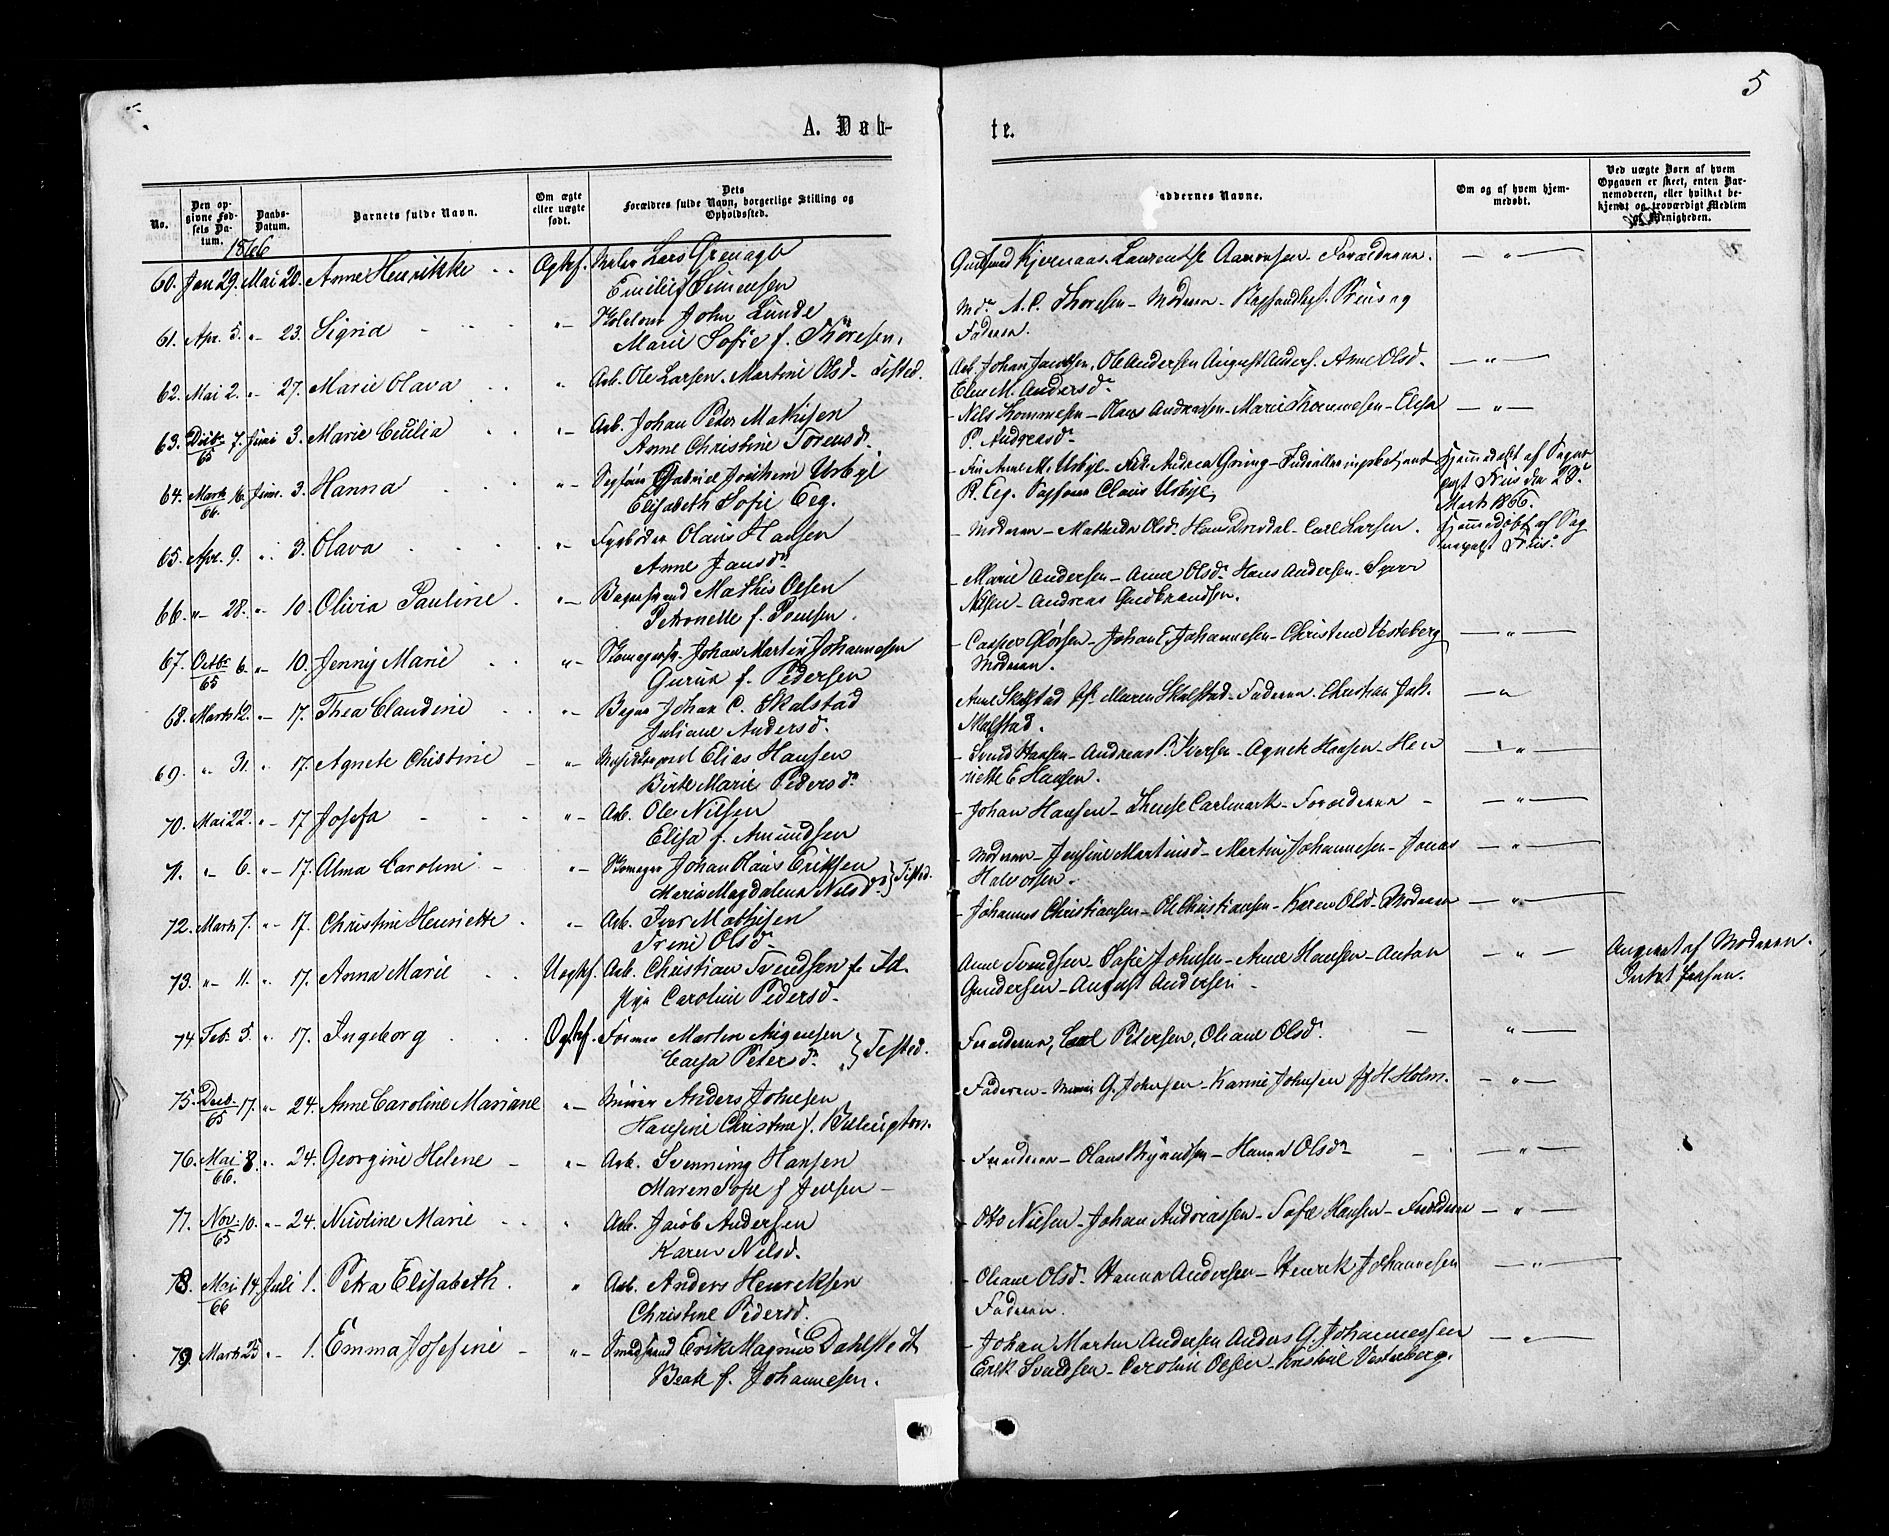 5
A. Døb-
te.
No.
Den opgivne Fødsels Datum.
Daabs-Datum.
Barnets fulde Navn.
Om ægte eller uægte født.
Dets Forældres fulde Navn, borgerlige Stilling og Opholdssted.
Faddernes Navne.
Om og af hvem hjemmedøbt.
Ved uægte Børn af hvem Opgaven er skeet, enten Barnemoderen, eller hvilket bekjendt og troværdigt Medlem af Menigheden.
1866
60. Jan 29. Mai 20. Anne Henrikke Ægtef. Maler Lars Grenager Gudmund Kjernaas. Laurentse Aaronsen. Forældrene. — " —
Emilie f. Simensen
61. Apr. 5. "- 23. Sigrid "- Skolelærer John Lunde Md. A. C. Thoresen - Moderen - Prius og
Marie Sofie f. Thoresen. Faderen.
62. Mai 2. "- 27. Marie Olava " Arb. Ole Larsen. Martine Olsd. Tisted. Arb. Johan Jacobsen, Ole Andersen August Anders. Anne Olsd. — " —
Elen M. Andersd.
63. Decbr/65 7. Juni 3. Marie Cecilia "- Arb. Johan Peter Mathisen - Nils Thommesen - Olaus Andreassen - Marie Thommesen - Elisa — " —
Anne Christine Torensd. P. Andreasd.
64. Marts/66 16. Juni 3. Hanna "- Gabriel Joachim Urbye - Anne M. Urbye - Andrea Gring - Hjemmedøbt af
Elisabeth Sofie Eeg. R. Eeg. Claus Urbye, den 29de Marts 1866.
65. Apr. 9. " 3. Olava "- Fyrbøder Olaus Hansen - Moderen - Mathilda Olsd. Hans Dredal - Carl Larsen. Hjemmedøbt af
Anne Jansd.
66. "- 28. "- 10. Olivia Pauline "- Bagersvend Mathis Olsen - Marie Andersen - Anne Olsd. Hans Andersen - Syver
Petronelle f. Poulsen. Nilsen - Andreas Gudbrandsen.
67. Octbr/65 6. "- 10. Jenny Marie "- Skomagersv. Johan Martin Johannesen - Casper Glørsen - Johan E Johannesen - Christine Vesteberg — " —
Gurine f. Pedersen Moderen.
68. Marts 12. "- 17. Thea Claudine "- Bager Johan C. Skalstad Anne Skalstad Maren Skalstad - Faderen. Christian Joh. — "
Juliane Andersd. Skalstad.
69. " 31. " 17. Agnete Christine "- Elias Hansen - Svend Hansen - Andreas P. Iversen - Agnete Hansen - Hen — " —
Birte Marie Pedersd. riette E Hansen.
70. Mai 22. "- 17 Josefa "- Arb. Ole Nilsen - Johan Hansen - Therese Carlmark - Forældrene - — " —
Elisa f. Amundsen
71. "- 6. "- 17. Alma Caroline "- Skomager Johan Olaus Eriksen } Tisted. - Moderen - Jensine Martinsd - Martin Johannesen - Jonas — " —
Maria Magdalena Nilsd. Halvorsen.
72. Marts 7. "- 17. Christine Henriette "- Arb. Iver Mathisen - Johannes Christiansen - Ole Christiansen - Karen Olsd. - Moderen — " —
Trine Olsd.
73. "- 11. " 17. Anna Marie Uægtef. Arb. Christian Svendsen Anne Svendsen Sofie Johnsen - Anne Hansen - Anton — " — Angivet af Moderen.
Caroline Pedersd. Gundersen - August Andersen -
74. Feb. 5. " 17. Ingeborg Ægtef. Former Martin Mogensen } Tisted. Forældrene, Carl Petersen, Oleane Olsd. — " —
Caisa Petersd.
75. Decb/65 17. "- 24. Anne Caroline Mariane "- Murer Anders Johnsen - Faderen - G. Johnsen - Karine Johnsen H. Holm. — " —
Hansine Christine f. Billington.
76. Mai/66 8. " 24. Georgine Helene - "- Arb. Svenning Hansen - Forældrene - Olaus Brynildsen - Hanna Olsd. — " —
Maren Sofie f. Jensen -
77. Nov/65 10. "- 24. Nicoline Marie " Arb. Jacob Andersen - Otto Nielsen - Johan Andreassen - Sofie Hansen - Forældrene — " —
Karen Nilsd.
78. Mai/66 14. Juli 1. Petra Elisabeth. " Arb. Anders Henriksen - Oleane Olsd. Hanna Andersen - Henrik Johannesen — " —
Christine Pedersd. Faderen.
79. Marts 23 "- 1. Emma Josefine "- Smedsvend Erik Magnus Dahlstedt - Johan Martin Andersen Anders G. Johannessen — " —
Beate f. Johannesen. Erik Svendsen - Caroline Olsen - Kristine Vesterberg.